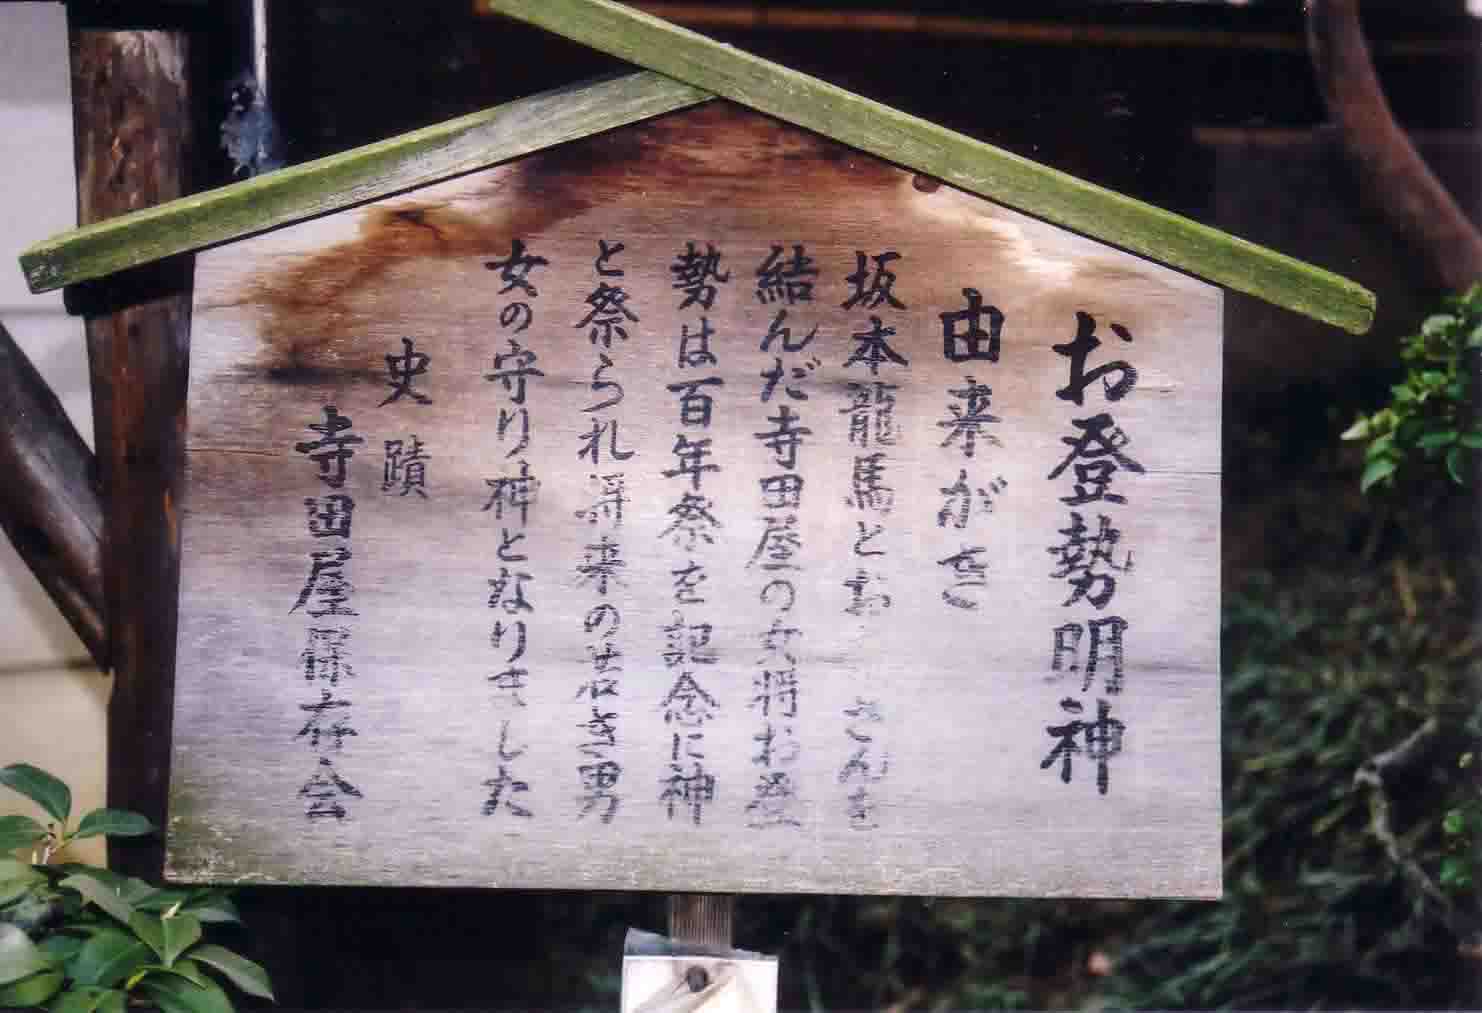 お登勢明神
由来がき
坂本龍馬とお さんを
結んだ寺田屋の女将お登
勢は百年祭を記念に神
と祭られ将来の若き男
女の守り神となりました
史蹟
寺田屋保存会